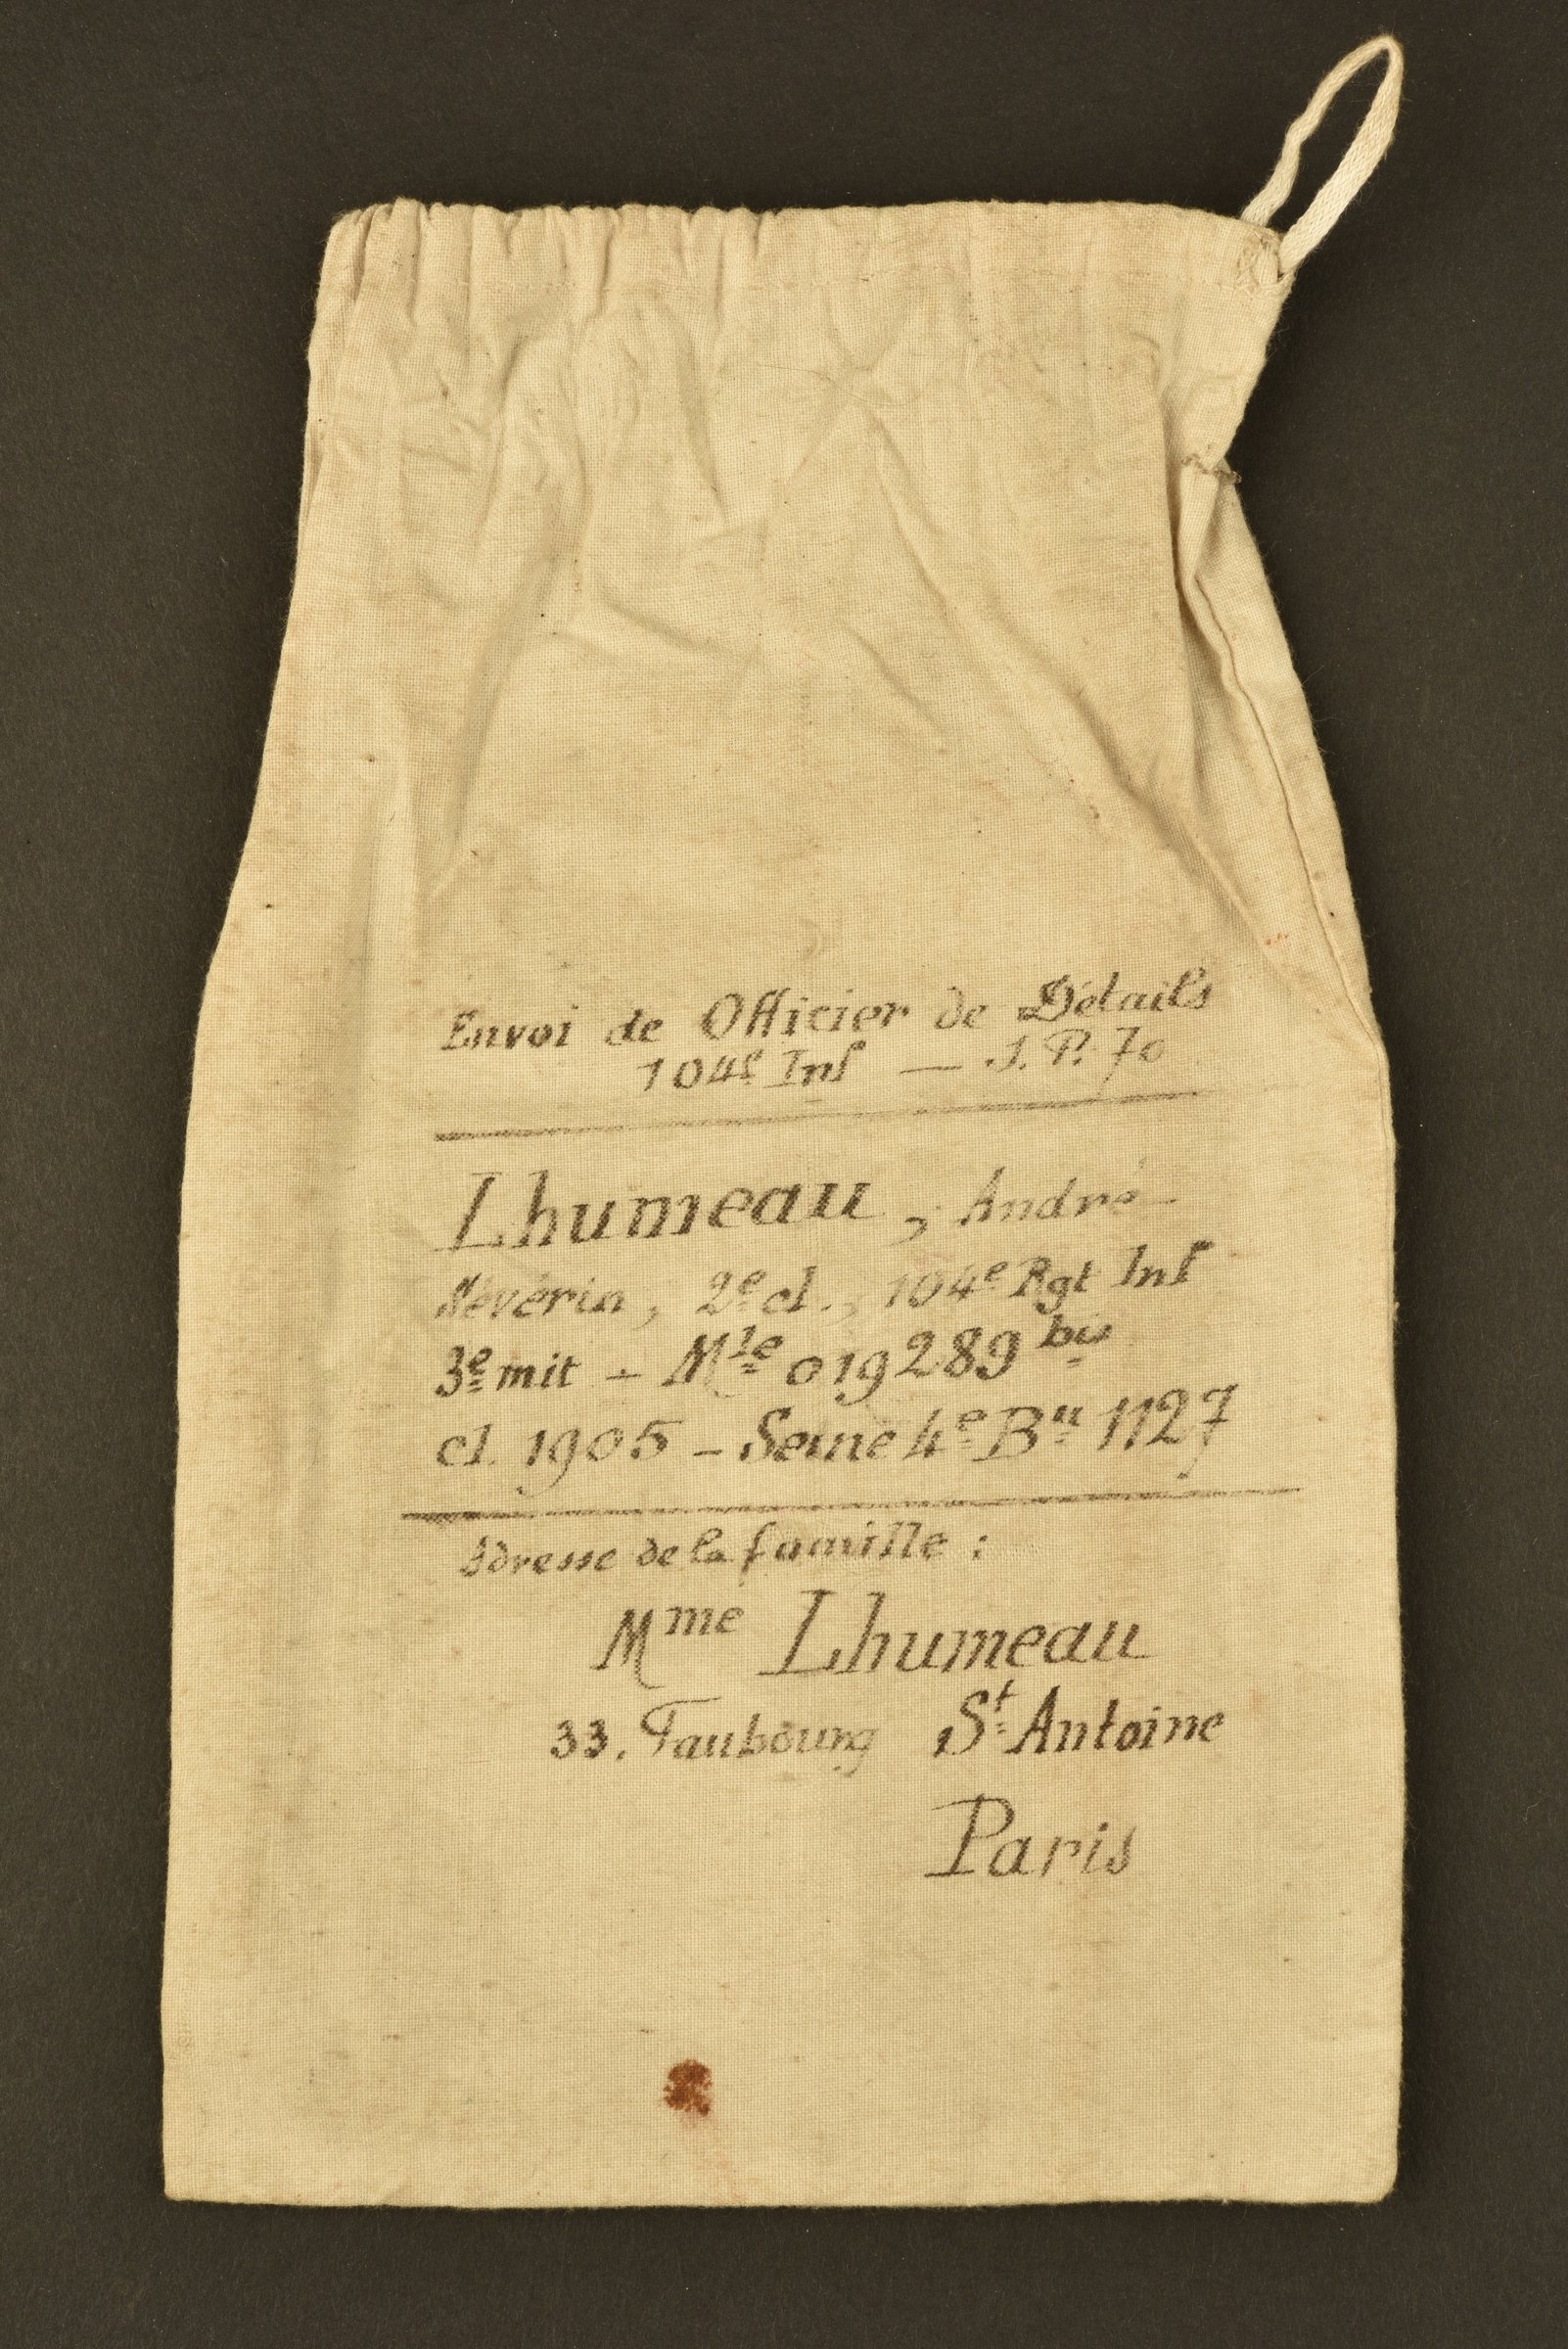 Envoi de Officier de Détails
104e Inf — S. P. 70
Lhumeau, André-
Névérin, 2e cl., 104e Rgt Inf
3e mit - Mle 019289 bis
cl. 1905 - Seine 4e Bau 1127
Adresse de la famille :
Mme Lhumeau
33. Faubourg St Antoine
Paris